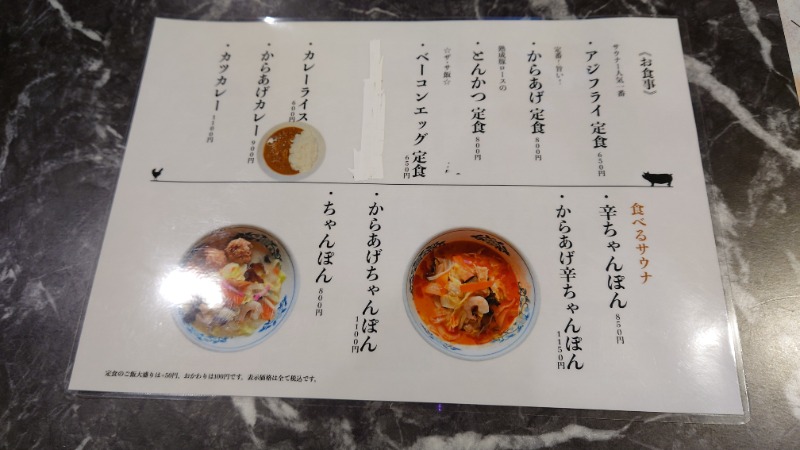 《お食事》
サウナー人気一番
・アジフライ定食 850円
定番!旨い!
・からあげ定食 800円
熟成豚ロースの
・とんかつ定食 800円
☆ザ・サ飯☆
・ベーコンエッグ定食 650円
・カレーライス 600円
・からあげカレー 900円
・カツカレー 1100円
食べるサウナ
・辛ちゃんぽん 850円
・からあげ辛ちゃんぽん 1150円
・からあげちゃんぽん 1100円
・ちゃんぽん 800円
定食のご飯大盛りは+50円、おかわりは100円です。表示価格は全て税込です。